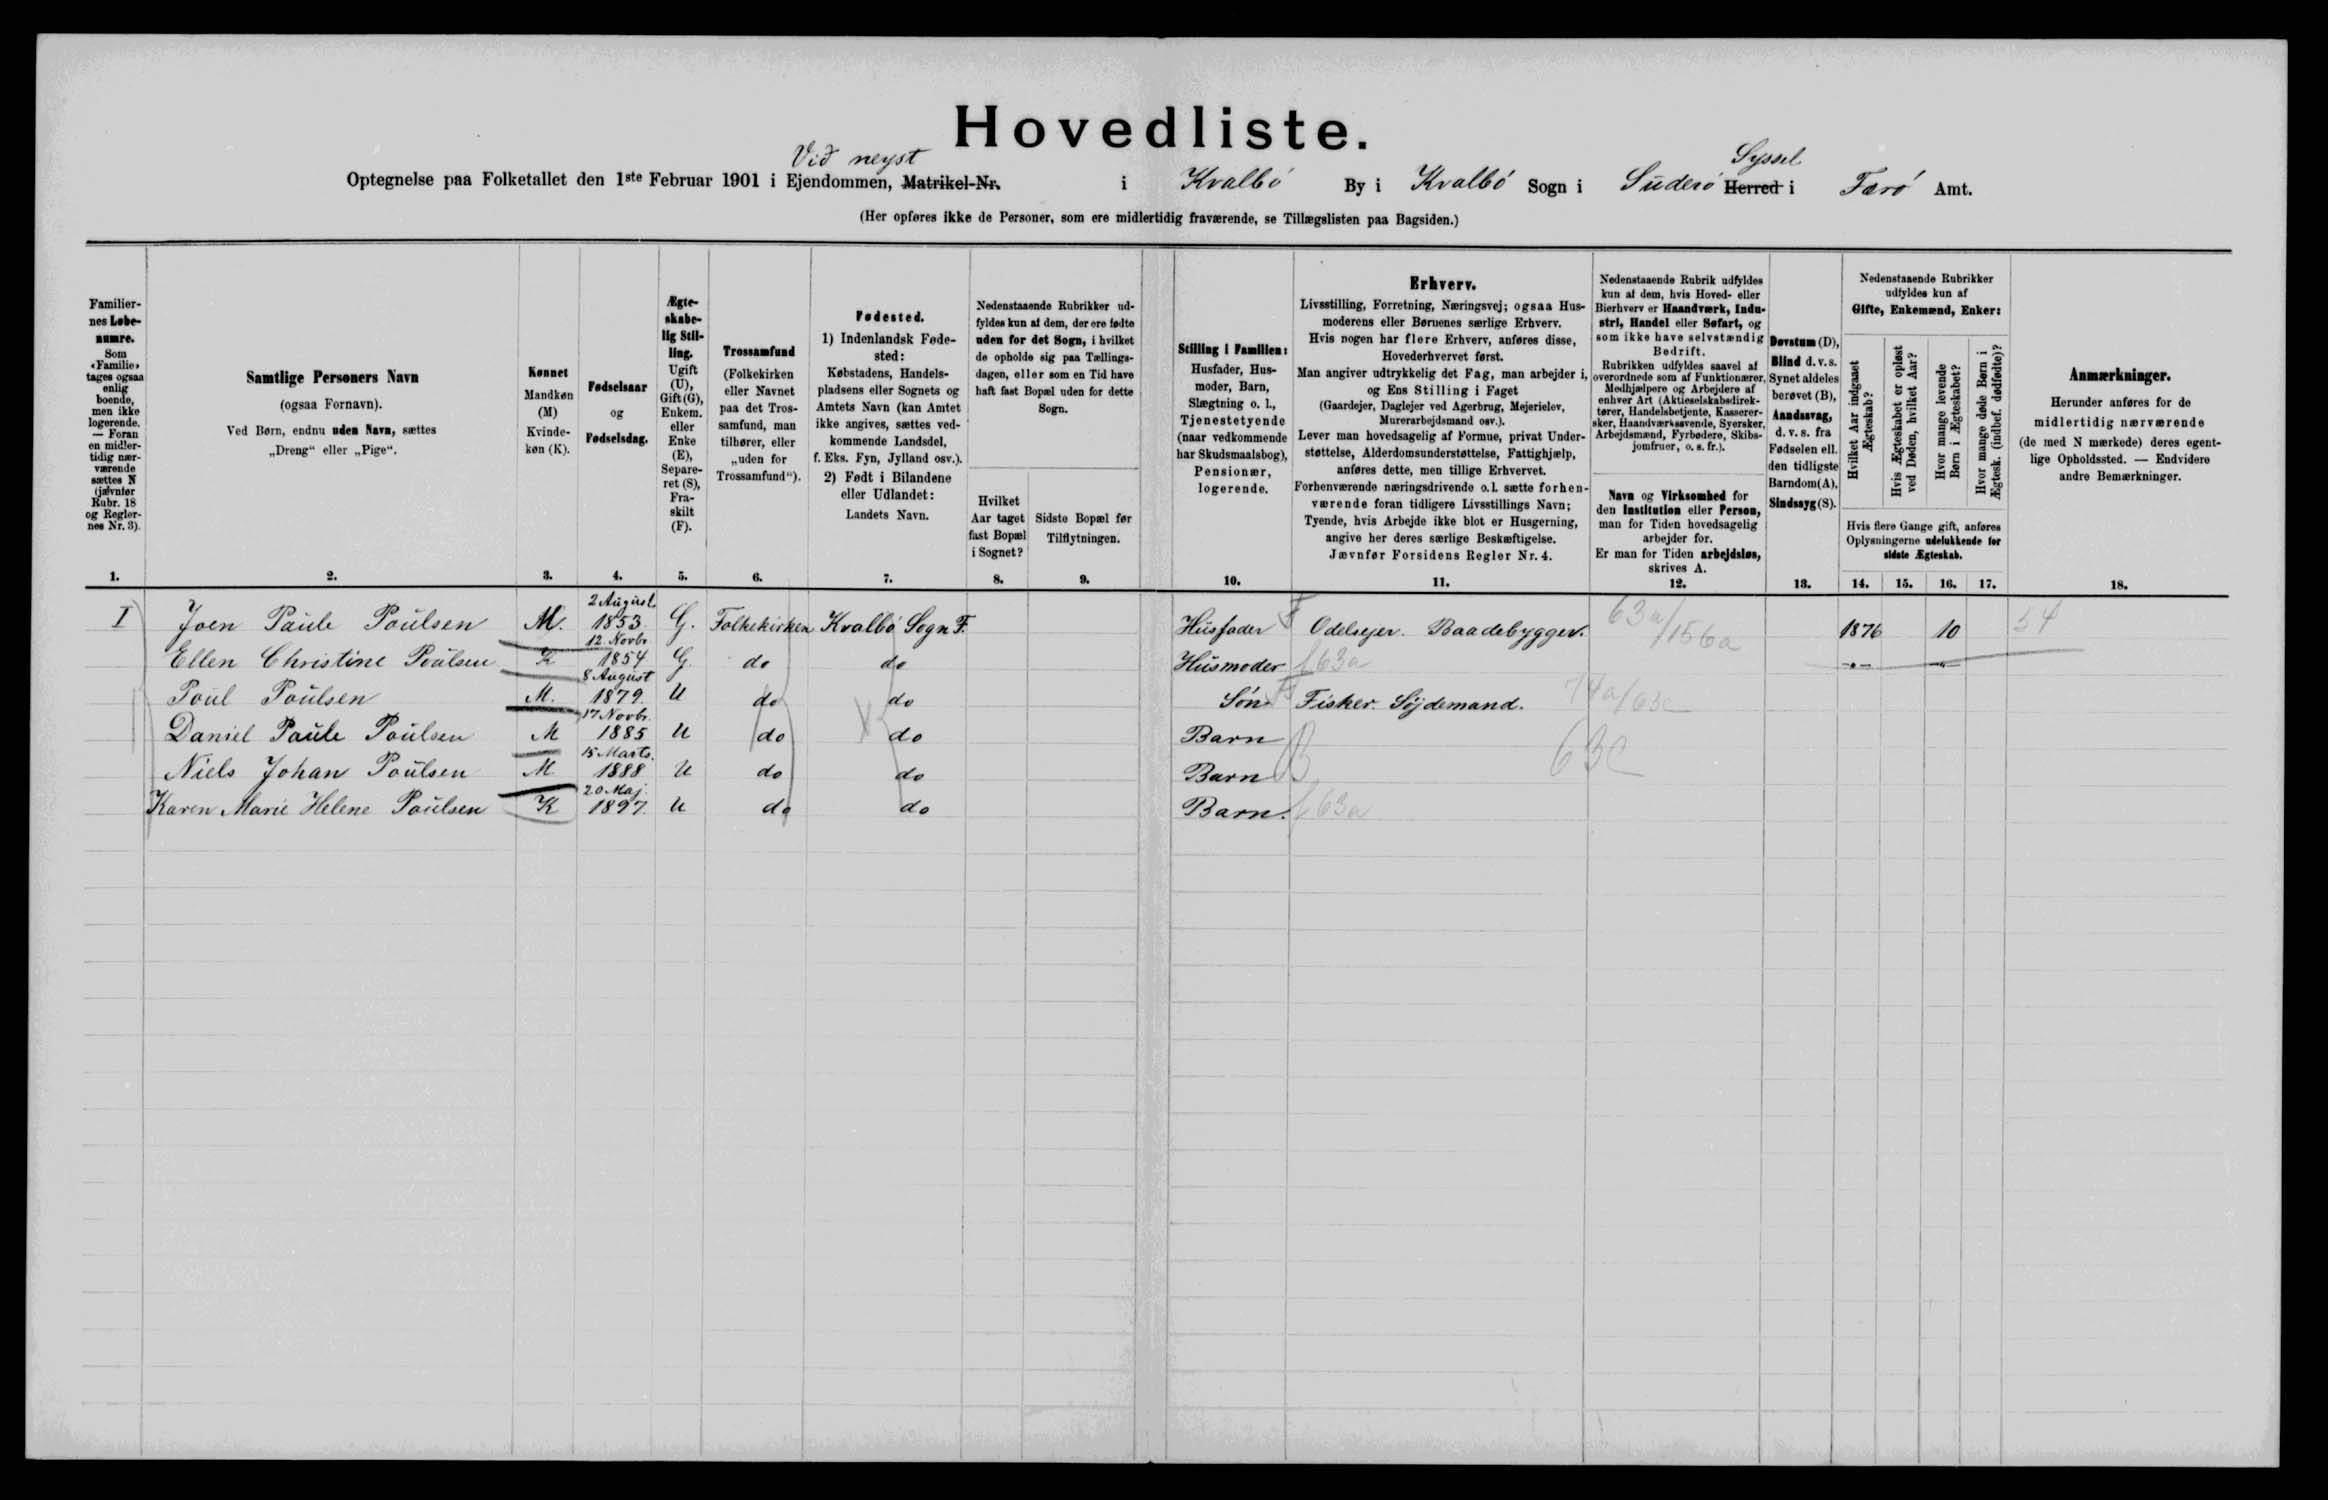 Hovedliste.
Vid neyst
Syssel
Optegnelse paa Folketallet den 1ste Februar 1901 i Ejendommen, Matrikel-Nr. i Kvalbø By i Kvalbø Sogn i Suderø Herred i Færø Amt.
(Her opføres ikke de Personer, som ere midlertidig fraværende, se Tillægslisten paa Bagsiden.)
Familier-
nes Løbe-
numre.
Som
«Familie»
tages ogsaa
enlig
boende,
men ikke
logerende.
— Foran
en midler-
tidig nær-
værende
sættes N
(jævnfør
Rubr. 18
og Regler-
nes Nr. 3).
1.
Samtlige Personers Navn
(ogsaa Fornavn).
Ved Børn, endnu uden Navn, sættes
„Dreng“ eller „Pige“.
2.
Kønnet
Mandkøn
(M)
Kvinde-
køn (K).
3.
Fødselsaar
og
Fødselsdag.
4.
Ægte-
skabe-
lig Stil-
ling.
Ugift
(U),
Gift (G),
Enkem.
eller
Enke
(E),
Separe-
ret (S),
Fra-
skilt
(F).
5.
Trossamfund
(Folkekirken
eller Navnet
paa det Tros-
samfund, man
tilhører, eller
„uden for
Trossamfund“).
6.
Fødested.
1) Indenlandsk Føde-
sted:
Købstadens, Handels-
pladsens eller Sognets og
Amtets Navn (kan Amtet
ikke angives, sættes ved-
kommende Landsdel,
f. Eks. Fyn, Jylland osv.).
2) Født i Bilandene
eller Udlandet:
Landets Navn.
7.
Nedenstaaende Rubrikker ud-
fyldes kun af dem, der ere fødte
uden for det Sogn, i hvilket
de opholde sig paa Tællings-
dagen, eller som en Tid have
haft fast Bopæl uden for dette
Sogn.
Hvilket
Aar taget
fast Bopæl
i Sognet?
8.
Sidste Bopæl før
Tilflytningen.
9.
Stilling i Familien:
Husfader, Hus-
moder, Barn,
Slægtning o. l.,
Tjenestetyende
(naar vedkommende
har Skudsmaalsbog),
Pensionær,
logerende.
10.
Erhverv.
Livsstilling, Forretning, Næringsvej; ogsaa Hus-
moderens eller Børnenes særlige Erhverv.
Hvis nogen har flere Erhverv, anføres disse,
Hovederhvervet først.
Man angiver udtrykkelig det Fag, man arbejder i,
og Ens Stilling i Faget
(Gaardejer, Daglejer ved Agerbrug, Mejerielev,
Murerarbejdsmand osv.).
Lever man hovedsagelig af Formue, privat Under-
støttelse, Alderdomsunderstøttelse, Fattighjælp,
anføres dette, men tillige Erhvervet.
Forhenværende næringsdrivende o.l. sætte forhen-
værende foran tidligere Livsstillings Navn;
Tyende, hvis Arbejde ikke blot er Husgerning,
angive her deres særlige Beskæftigelse.
Jævnfør Forsidens Regler Nr. 4.
11.
Nedenstaaende Rubrik udfyldes
kun af dem, hvis Hoved- eller
Bierhverv er Haandværk, Indu-
stri, Handel eller Søfart, og
som ikke have selvstændig
Bedrift.
Rubrikken udfyldes saavel af
overordnede som af Funktionærer,
Medhjælpere og Arbejdere af
enhver Art (Aktieselskabsdirek-
tører, Handelsbetjente, Kasserer-
sker, Haandværkssvende, Syersker,
Arbejdsmænd, Fyrbødere, Skibs-
jomfruer, o. s. fr.).
Navn og Virksomhed for
den Institution eller Person,
man for Tiden hovedsagelig
arbejder for.
Er man for Tiden arbejdsløs,
skrives A.
12.
Døvstum (D),
Blind d.v.s.
Synet aldeles
berøvet (B),
Aandssvag,
d. v. s. fra
Fødselen ell.
den tidligste
Barndom (A),
Sindssyg (S).
13.
Nedenstaaende Rubrikker
udfyldes kun af
Gifte, Enkemænd, Enker:
Hvilket Aar indgaaet
Ægteskab?
Hvis Ægteskabet er opløst
ved Døden, hvilket Aar?
Hvor mange levende
Børn i Ægteskabet?
Hvor mange døde Børn i
Ægtesk. (indbef. dødfødte)?
Hvis flere Gange gift, anføres
Oplysningerne udelukkende for
sidste Ægteskab.
14. 15. 16. 17.
Anmærkninger.
Herunder anføres for de
midlertidig nærværende
(de med N mærkede) deres egent-
lige Opholdssted. — Endvidere
andre Bemærkninger.
18.
I Joen Paule Poulsen M. 2 August 1853. G. Folkekirken Kvalbø Sogn F. Husfader Odelsejer. Baadebygger. 63a/156a 1876 10 54
Ellen Christine Poulsen K 12 Novbr 1854 G. do do Husmoder f 63a —"— —"—
Poul Poulsen M. 8 August 1879. U do do Søn Fisker. Søjdemand. 74a/63c
Daniel Paule Poulsen M 17 Novbr. 1885 U do do Barn
Niels Johan Poulsen M 15 Marts. 1888 U do do Barn B 63c
Karen Marie Helene Poulsen K 20 Maj. 1897. U do do Barn. f 63a